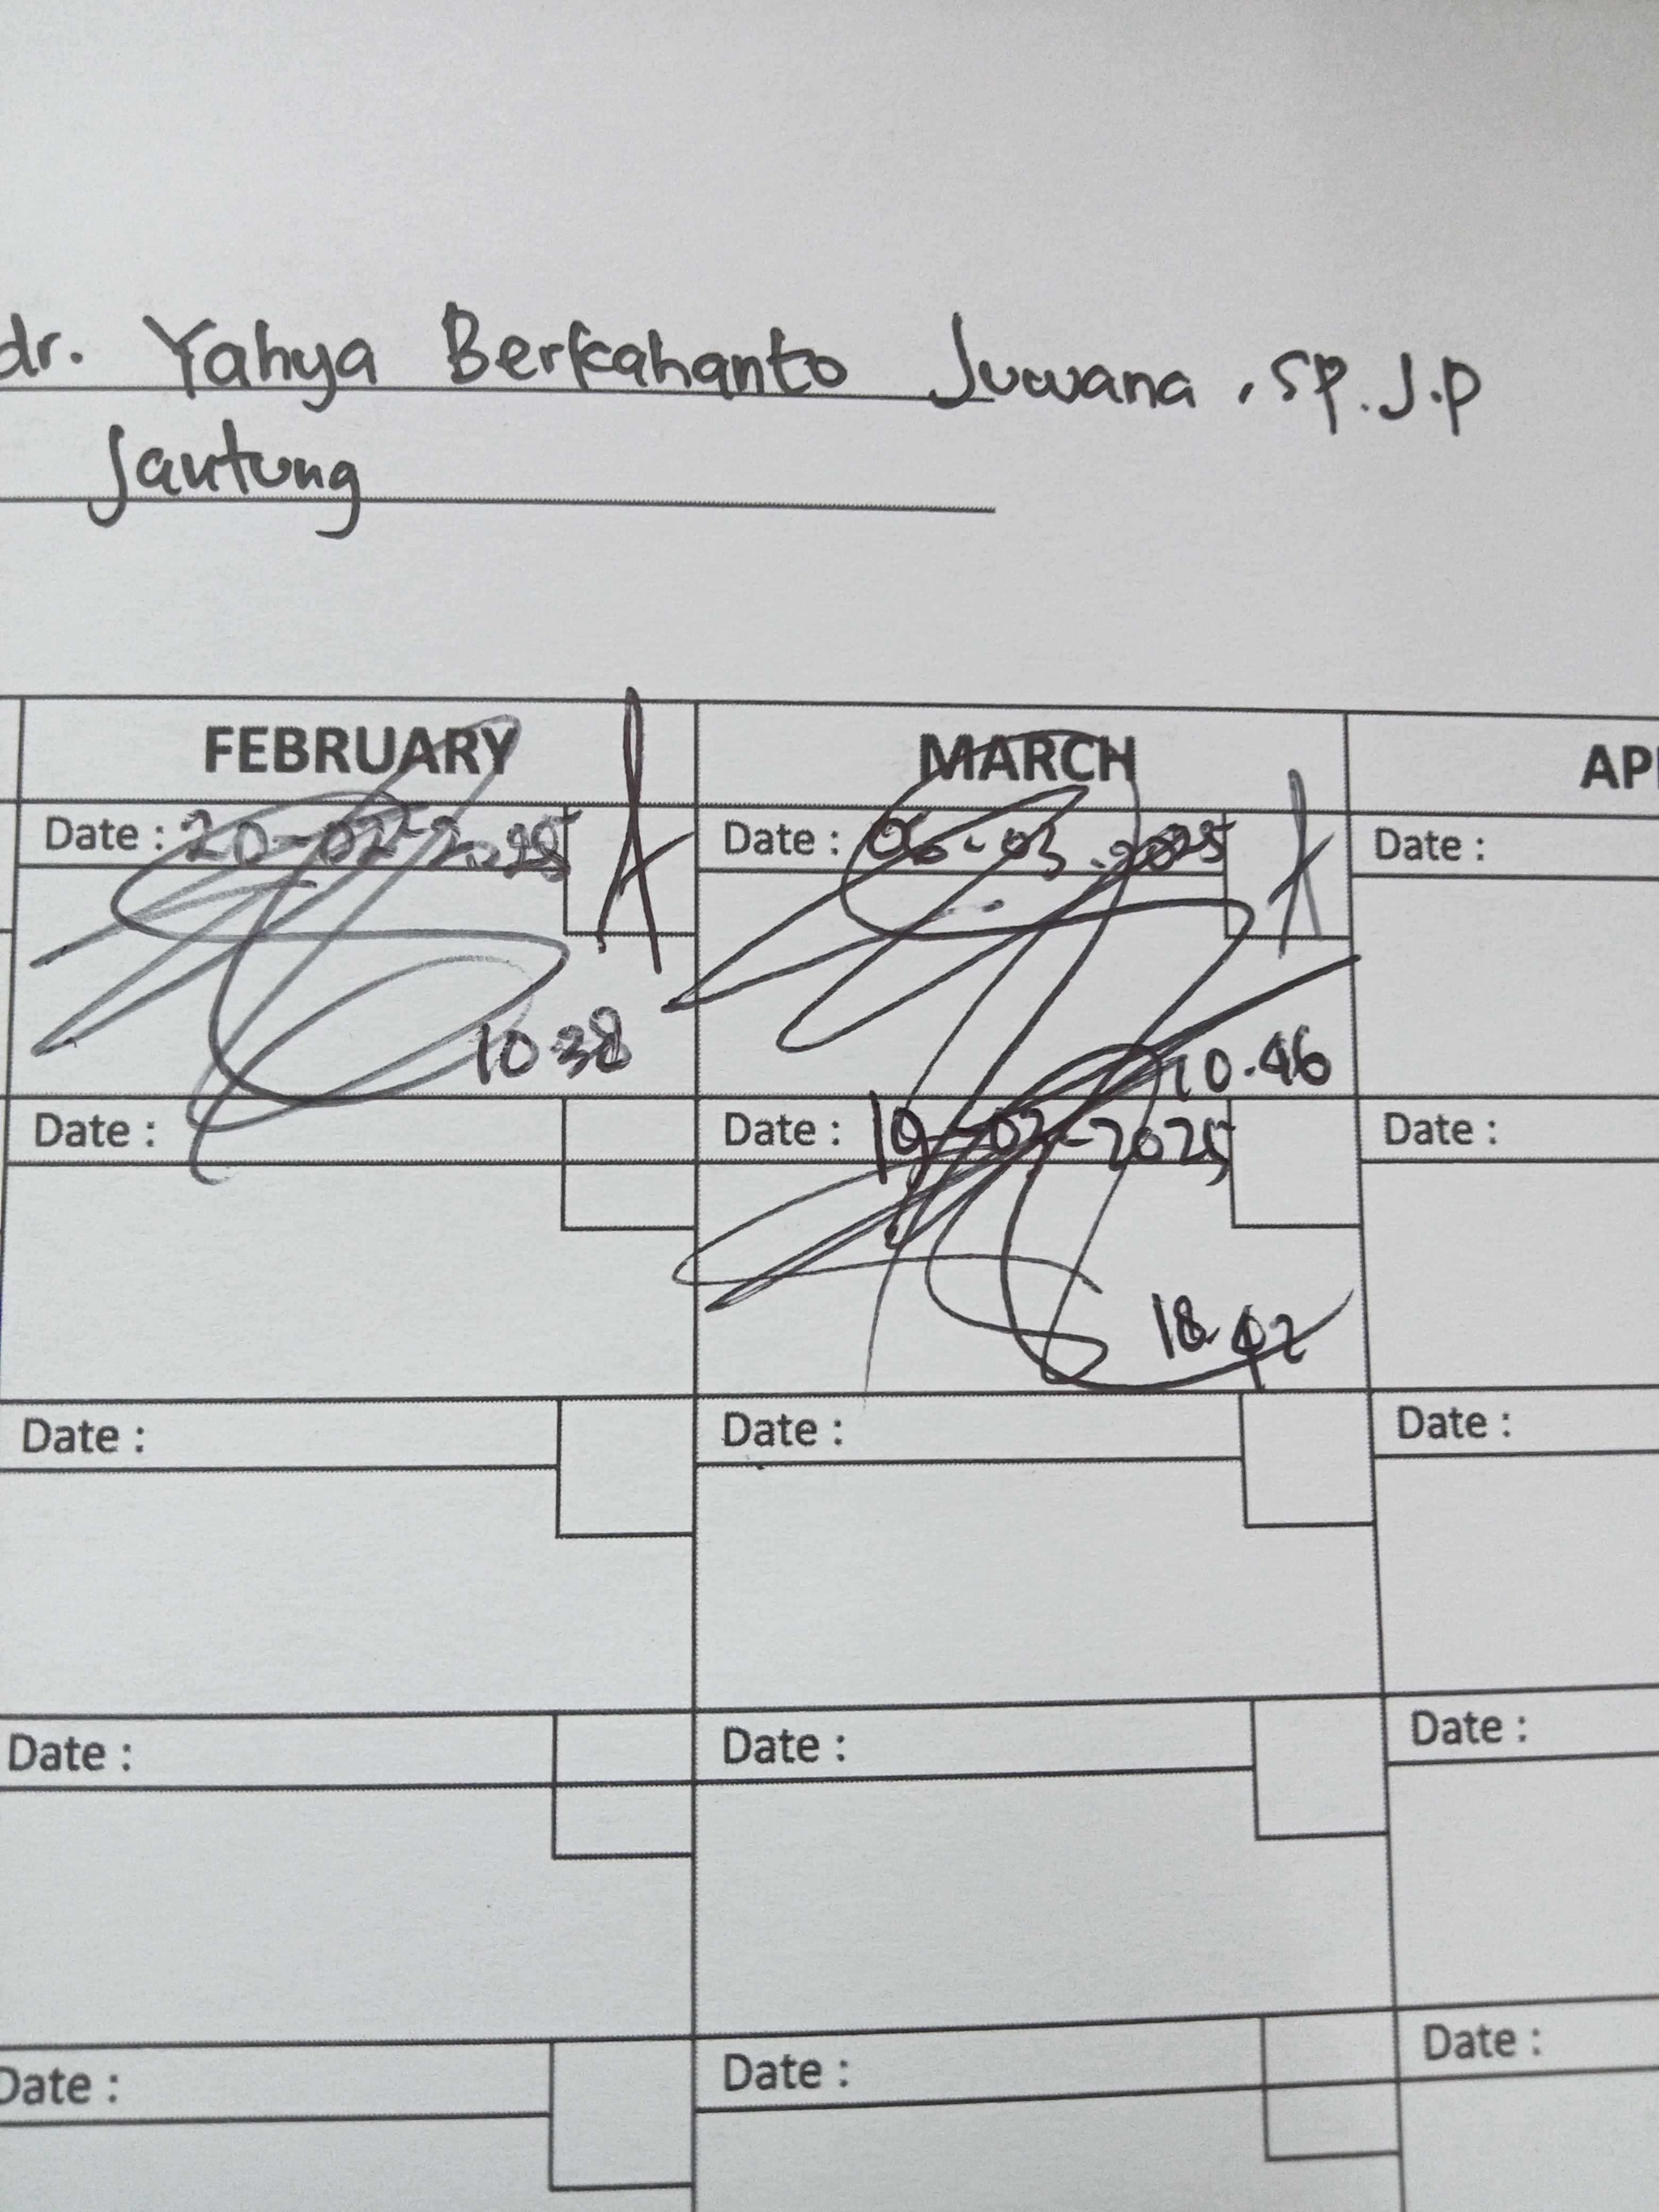 dr. Yahya Berkahanto Juwana, Sp.J.P
Jantung
FEBRUARY MARCH
Date : 20-02-2025 Date : 06-03-2025 Date :
10.38 10.46
Date : Date : 19-03-2025 Date :
18.42
Date : Date : Date :
Date : Date : Date :
Date : Date : Date :